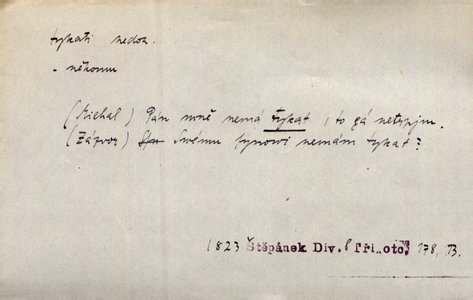 tykati nedok.
- někomu
(Michal) Pan mně nemá tykat, to gá netrpjm.
(Zázvor) Swému synowi nemám tykat?
1823 Štěpánek Div. 8 Tři otc. 178, B.